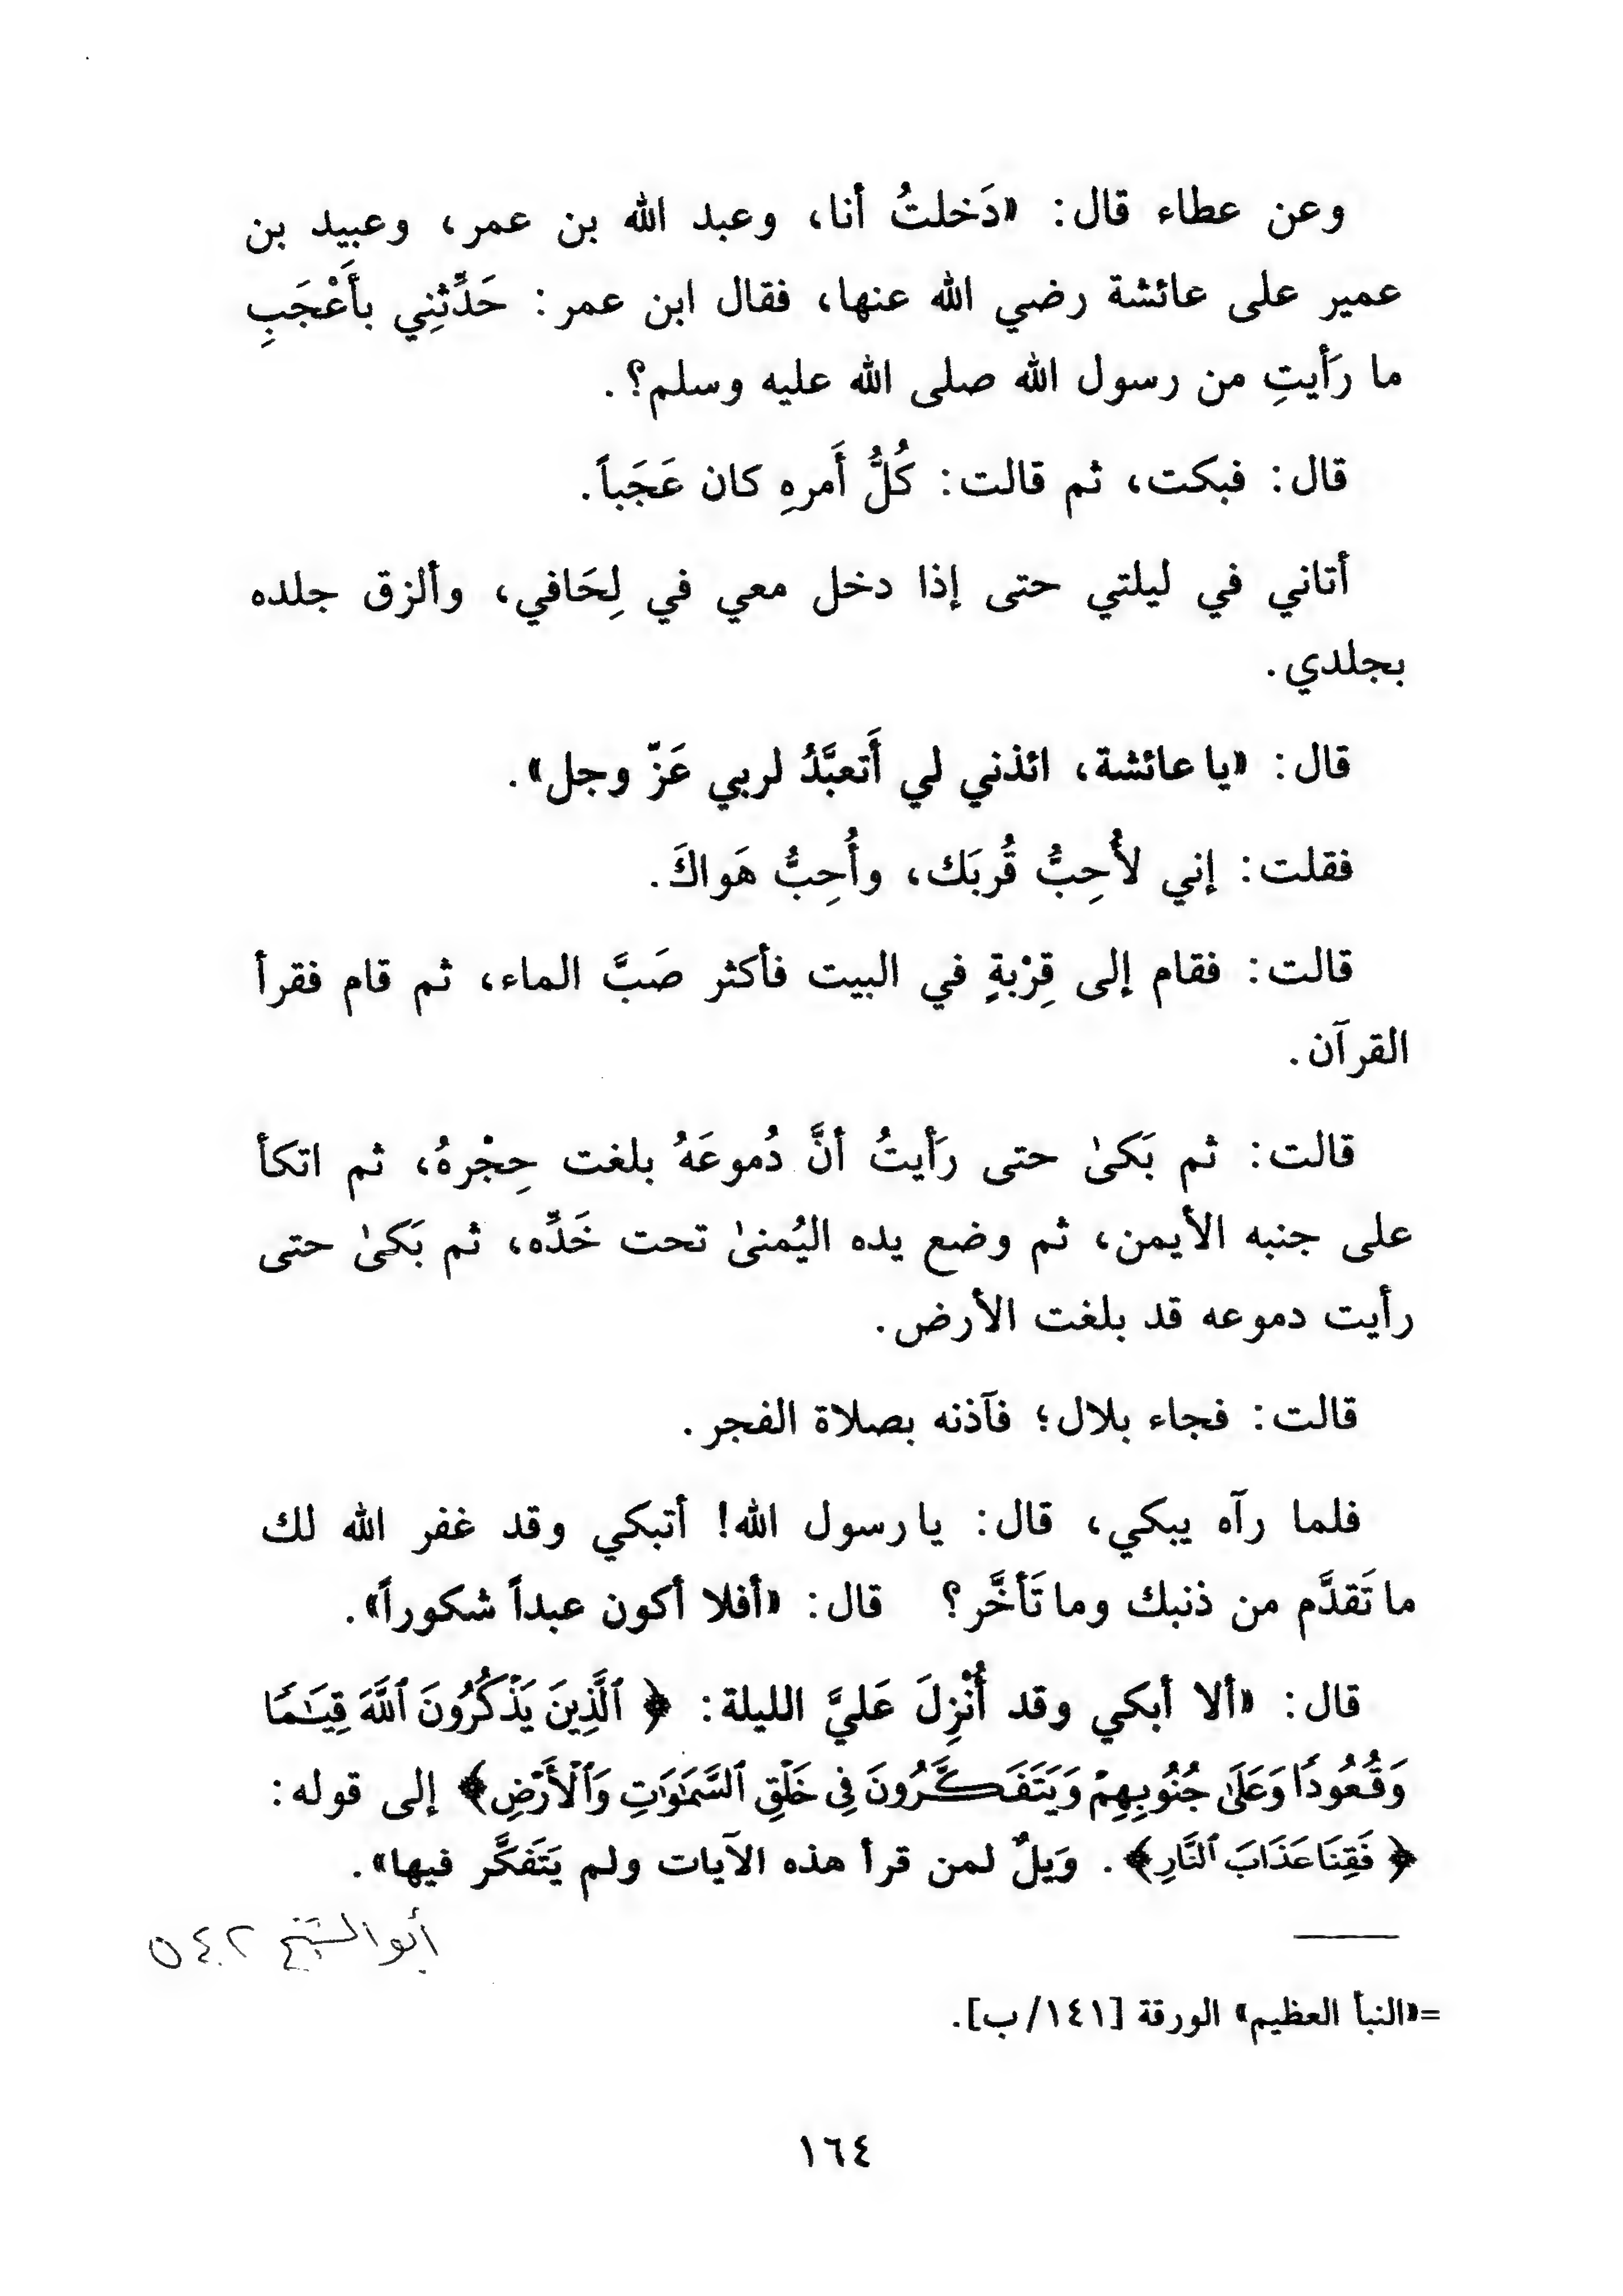 وعن عطاء قال: «دَخلتُ أنا، وعبد الله بن عمر، وعبيد بن
عمير على عائشة رضي الله عنها، فقال ابن عمر: حَدِّثِني بأَعْجَبِ
ما رَأيتِ من رسول الله صلى الله عليه وسلم؟.
قال: فبكت، ثم قالت: كُلُّ أَمرهِ كان عَجَباً.
أتاني في ليلتي حتى إذا دخل معي في لِحَافي، وألزق جلده
بجلدي.
قال: «يا عائشة، ائذني لي أَتعبَّدُ لربي عَزّ وجل».
فقلت: إني لأُحِبُّ قُربَك، وأُحِبُّ هَواكَ.
قالت: فقام إلى قِرْبةٍ في البيت فأكثر صَبَّ الماء، ثم قام فقرأ
القرآن.
قالت: ثم بَكىٰ حتى رَأيتُ أنَّ دُموعَهُ بلغت حِجْرهُ، ثم اتكأ
على جنبه الأيمن، ثم وضع يده اليُمنىٰ تحت خَدِّه، ثم بَكىٰ حتى
رأيت دموعه قد بلغت الأرض.
قالت: فجاء بلال؛ فآذنه بصلاة الفجر.
فلما رآه يبكي، قال: يا رسول الله! أتبكي وقد غفر الله لك
ما تَقدَّم من ذنبك وما تَأخَّر؟ قال: «أفلا أكون عبداً شكوراً».
قال: «ألا أبكي وقد أُنْزِلَ عَليَّ الليلة: ﴿ ٱلَّذِينَ يَذْكُرُونَ ٱللَّهَ قِيَـٰمًا
وَقُعُودًا وَعَلَىٰ جُنُوبِهِمْ وَيَتَفَكَّرُونَ فِى خَلْقِ ٱلسَّمَـٰوَٰتِ وَٱلْأَرْضِ ﴾ إلى قوله:
﴿ فَقِنَا عَذَابَ ٱلنَّارِ ﴾. وَيلٌ لمن قرأ هذه الآيات ولم يَتَفكَّر فيها».
أبو الشيخ ٥٤٢
=«النبأ العظيم» الورقة [١٤١/ب].
١٦٤